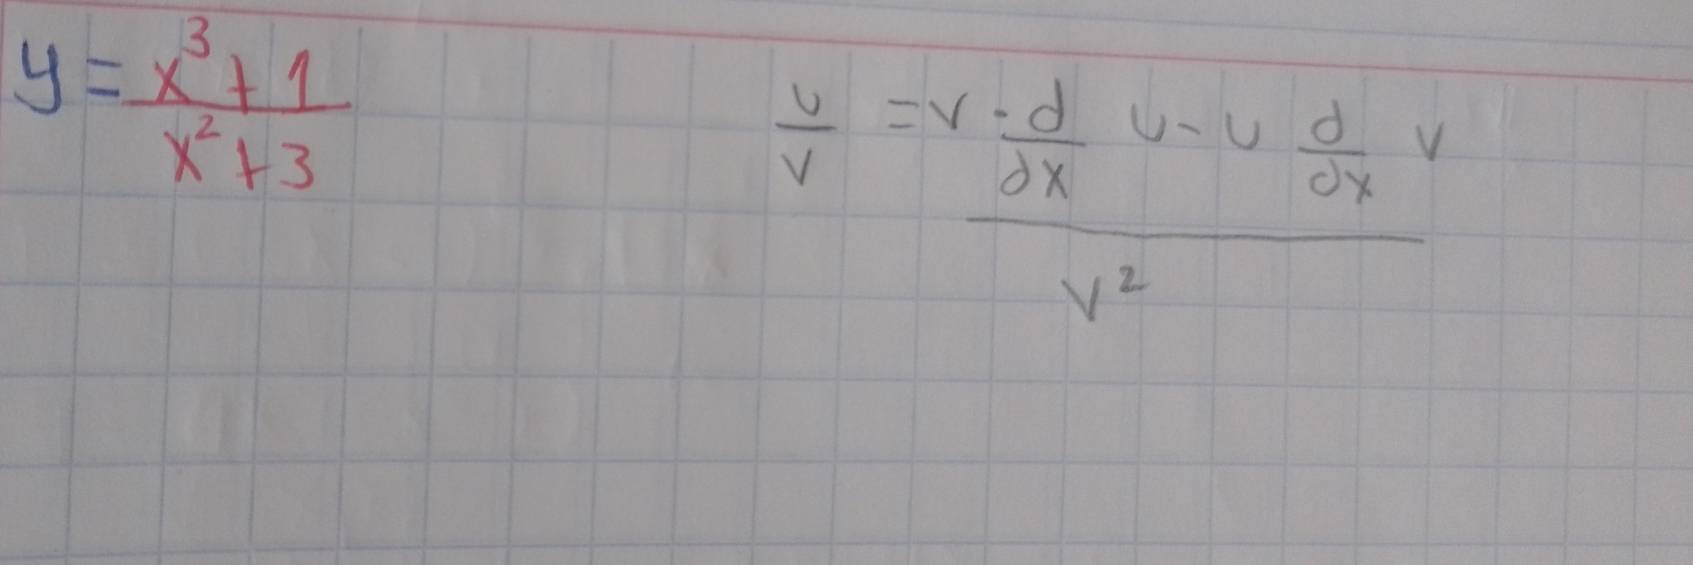 y = x³ + 1 / x² + 3
u/v = v · d/dx u - u d/dx v / v²